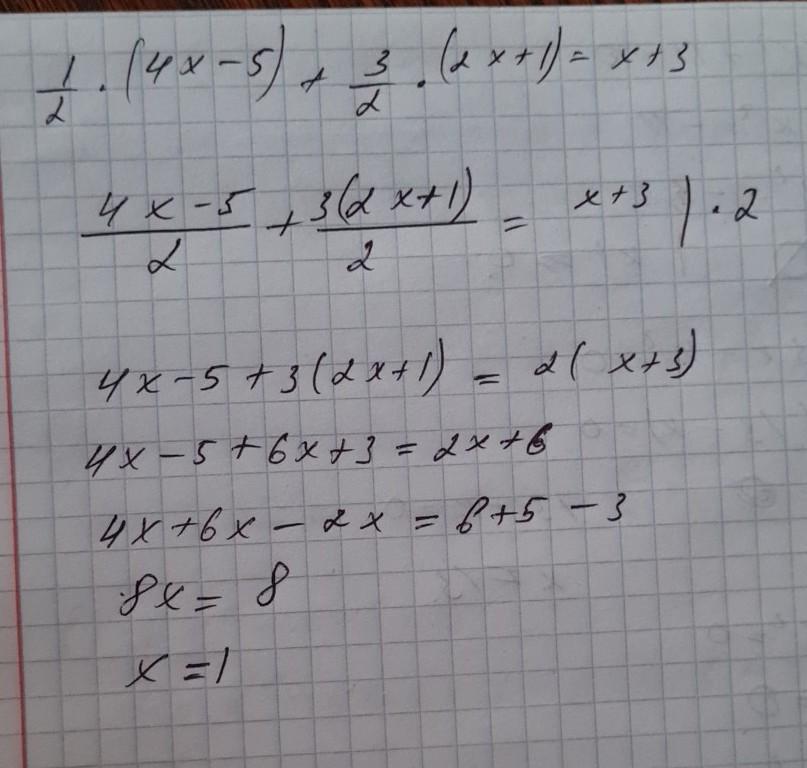 1/2 · (4x-5) + 3/2 · (2x+1) = x+3
(4x-5)/2 + 3(2x+1)/2 = x+3 | · 2
4x-5+3(2x+1) = 2(x+3)
4x-5+6x+3 = 2x+6
4x+6x-2x = 6+5-3
8x = 8
x = 1